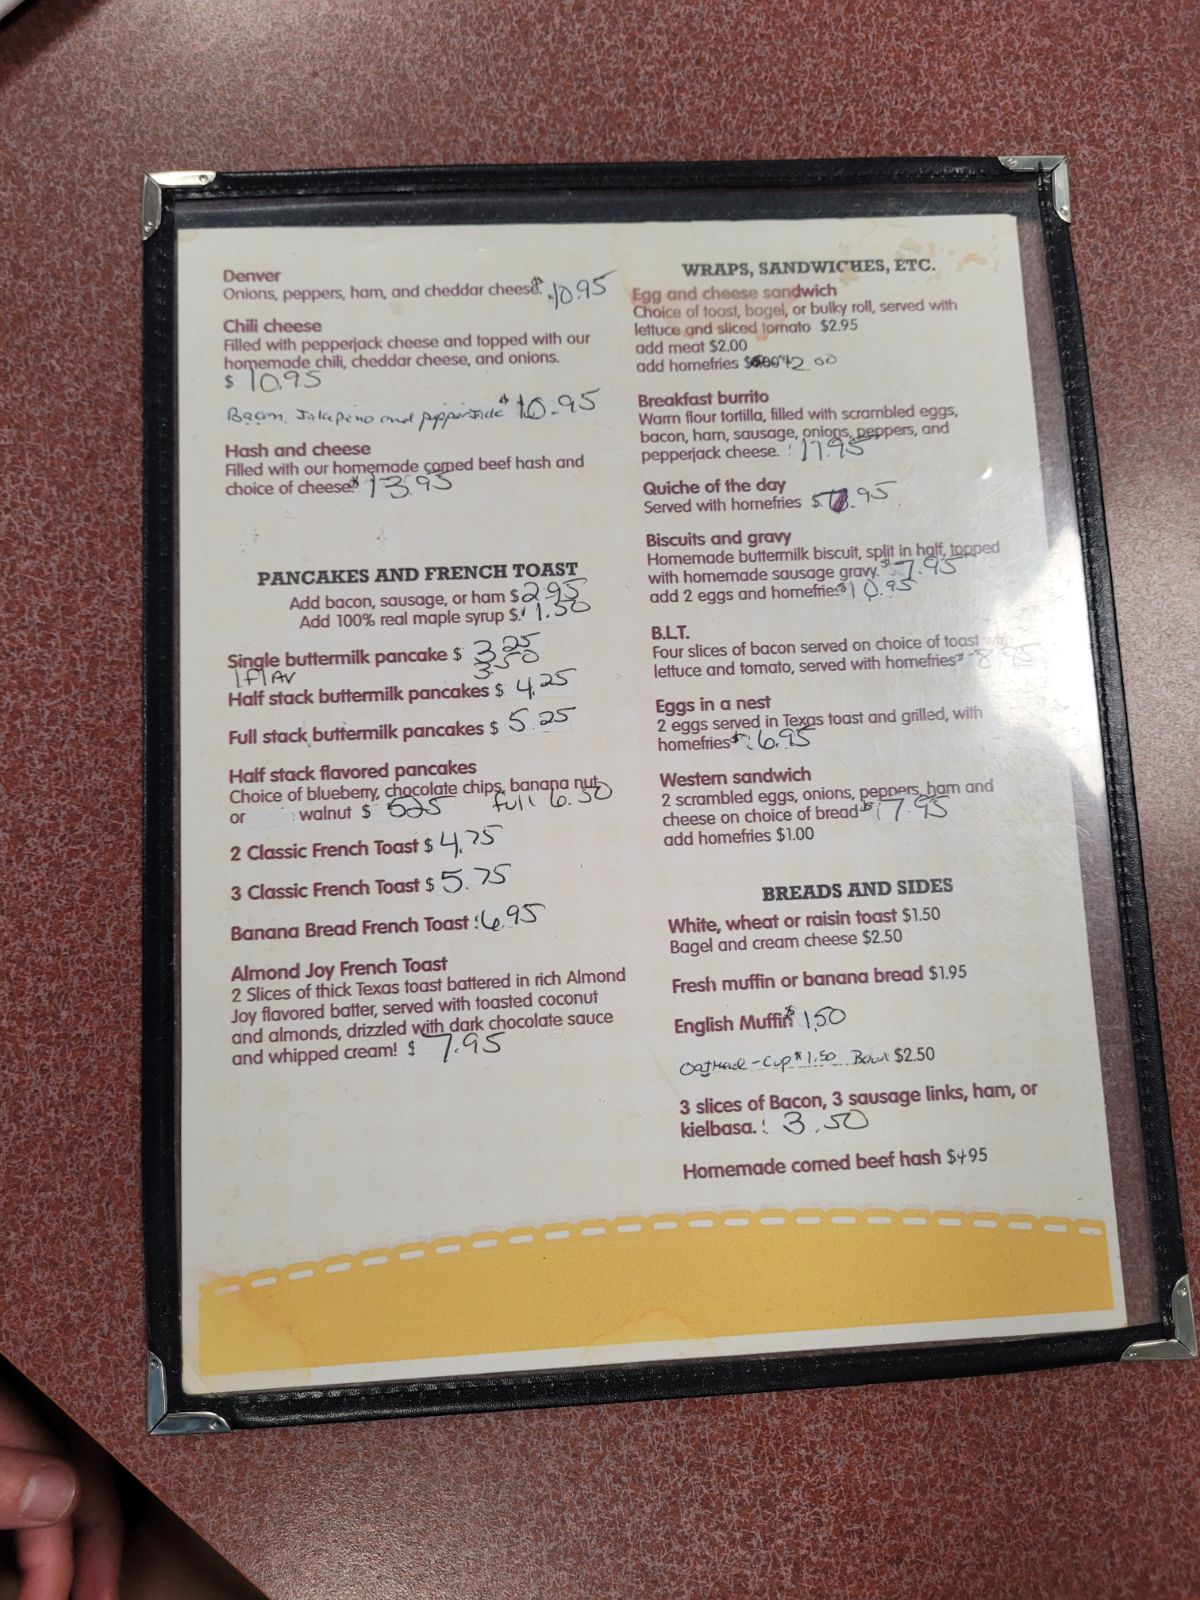 Denver
Onions, peppers, ham, and cheddar cheese. $10.95
Chili cheese
Filled with pepperjack cheese and topped with our
homemade chili, cheddar cheese, and onions.
$ 10.95
Bacon, Jalapeno and pepperjack $10.95
Hash and cheese
Filled with our homemade corned beef hash and
choice of cheese. $13.95
PANCAKES AND FRENCH TOAST
Add bacon, sausage, or ham $2.95
Add 100% real maple syrup $1.50
Single buttermilk pancake $ 3.25
1 flav 3.50
Half stack buttermilk pancakes $ 4.25
Full stack buttermilk pancakes $ 5.25
Half stack flavored pancakes
Choice of blueberry, chocolate chips, banana nut,
or walnut $ 525 full 6.50
2 Classic French Toast $ 4.75
3 Classic French Toast $ 5.75
Banana Bread French Toast 6.95
Almond Joy French Toast
2 Slices of thick Texas toast battered in rich Almond
Joy flavored batter, served with toasted coconut
and almonds, drizzled with dark chocolate sauce
and whipped cream! $ 7.95
WRAPS, SANDWICHES, ETC.
Egg and cheese sandwich
Choice of toast, bagel, or bulky roll, served with
lettuce and sliced tomato $2.95
add meat $2.00
add homefries 2.00
Breakfast burrito
Warm flour tortilla, filled with scrambled eggs,
bacon, ham, sausage, onions, peppers, and
pepperjack cheese. 11.95
Quiche of the day
Served with homefries $ .95
Biscuits and gravy
Homemade buttermilk biscuit, split in half, topped
with homemade sausage gravy. $7.95
add 2 eggs and homefries $10.95
B.L.T.
Four slices of bacon served on choice of toast with
lettuce and tomato, served with homefries $8.95
Eggs in a nest
2 eggs served in Texas toast and grilled, with
homefries $6.95
Western sandwich
2 scrambled eggs, onions, peppers, ham and
cheese on choice of bread $7.95
add homefries $1.00
BREADS AND SIDES
White, wheat or raisin toast $1.50
Bagel and cream cheese $2.50
Fresh muffin or banana bread $1.95
English Muffin $1.50
Oatmeal - Cup $1.50 Bowl $2.50
3 slices of Bacon, 3 sausage links, ham, or
kielbasa. 3.50
Homemade corned beef hash $495